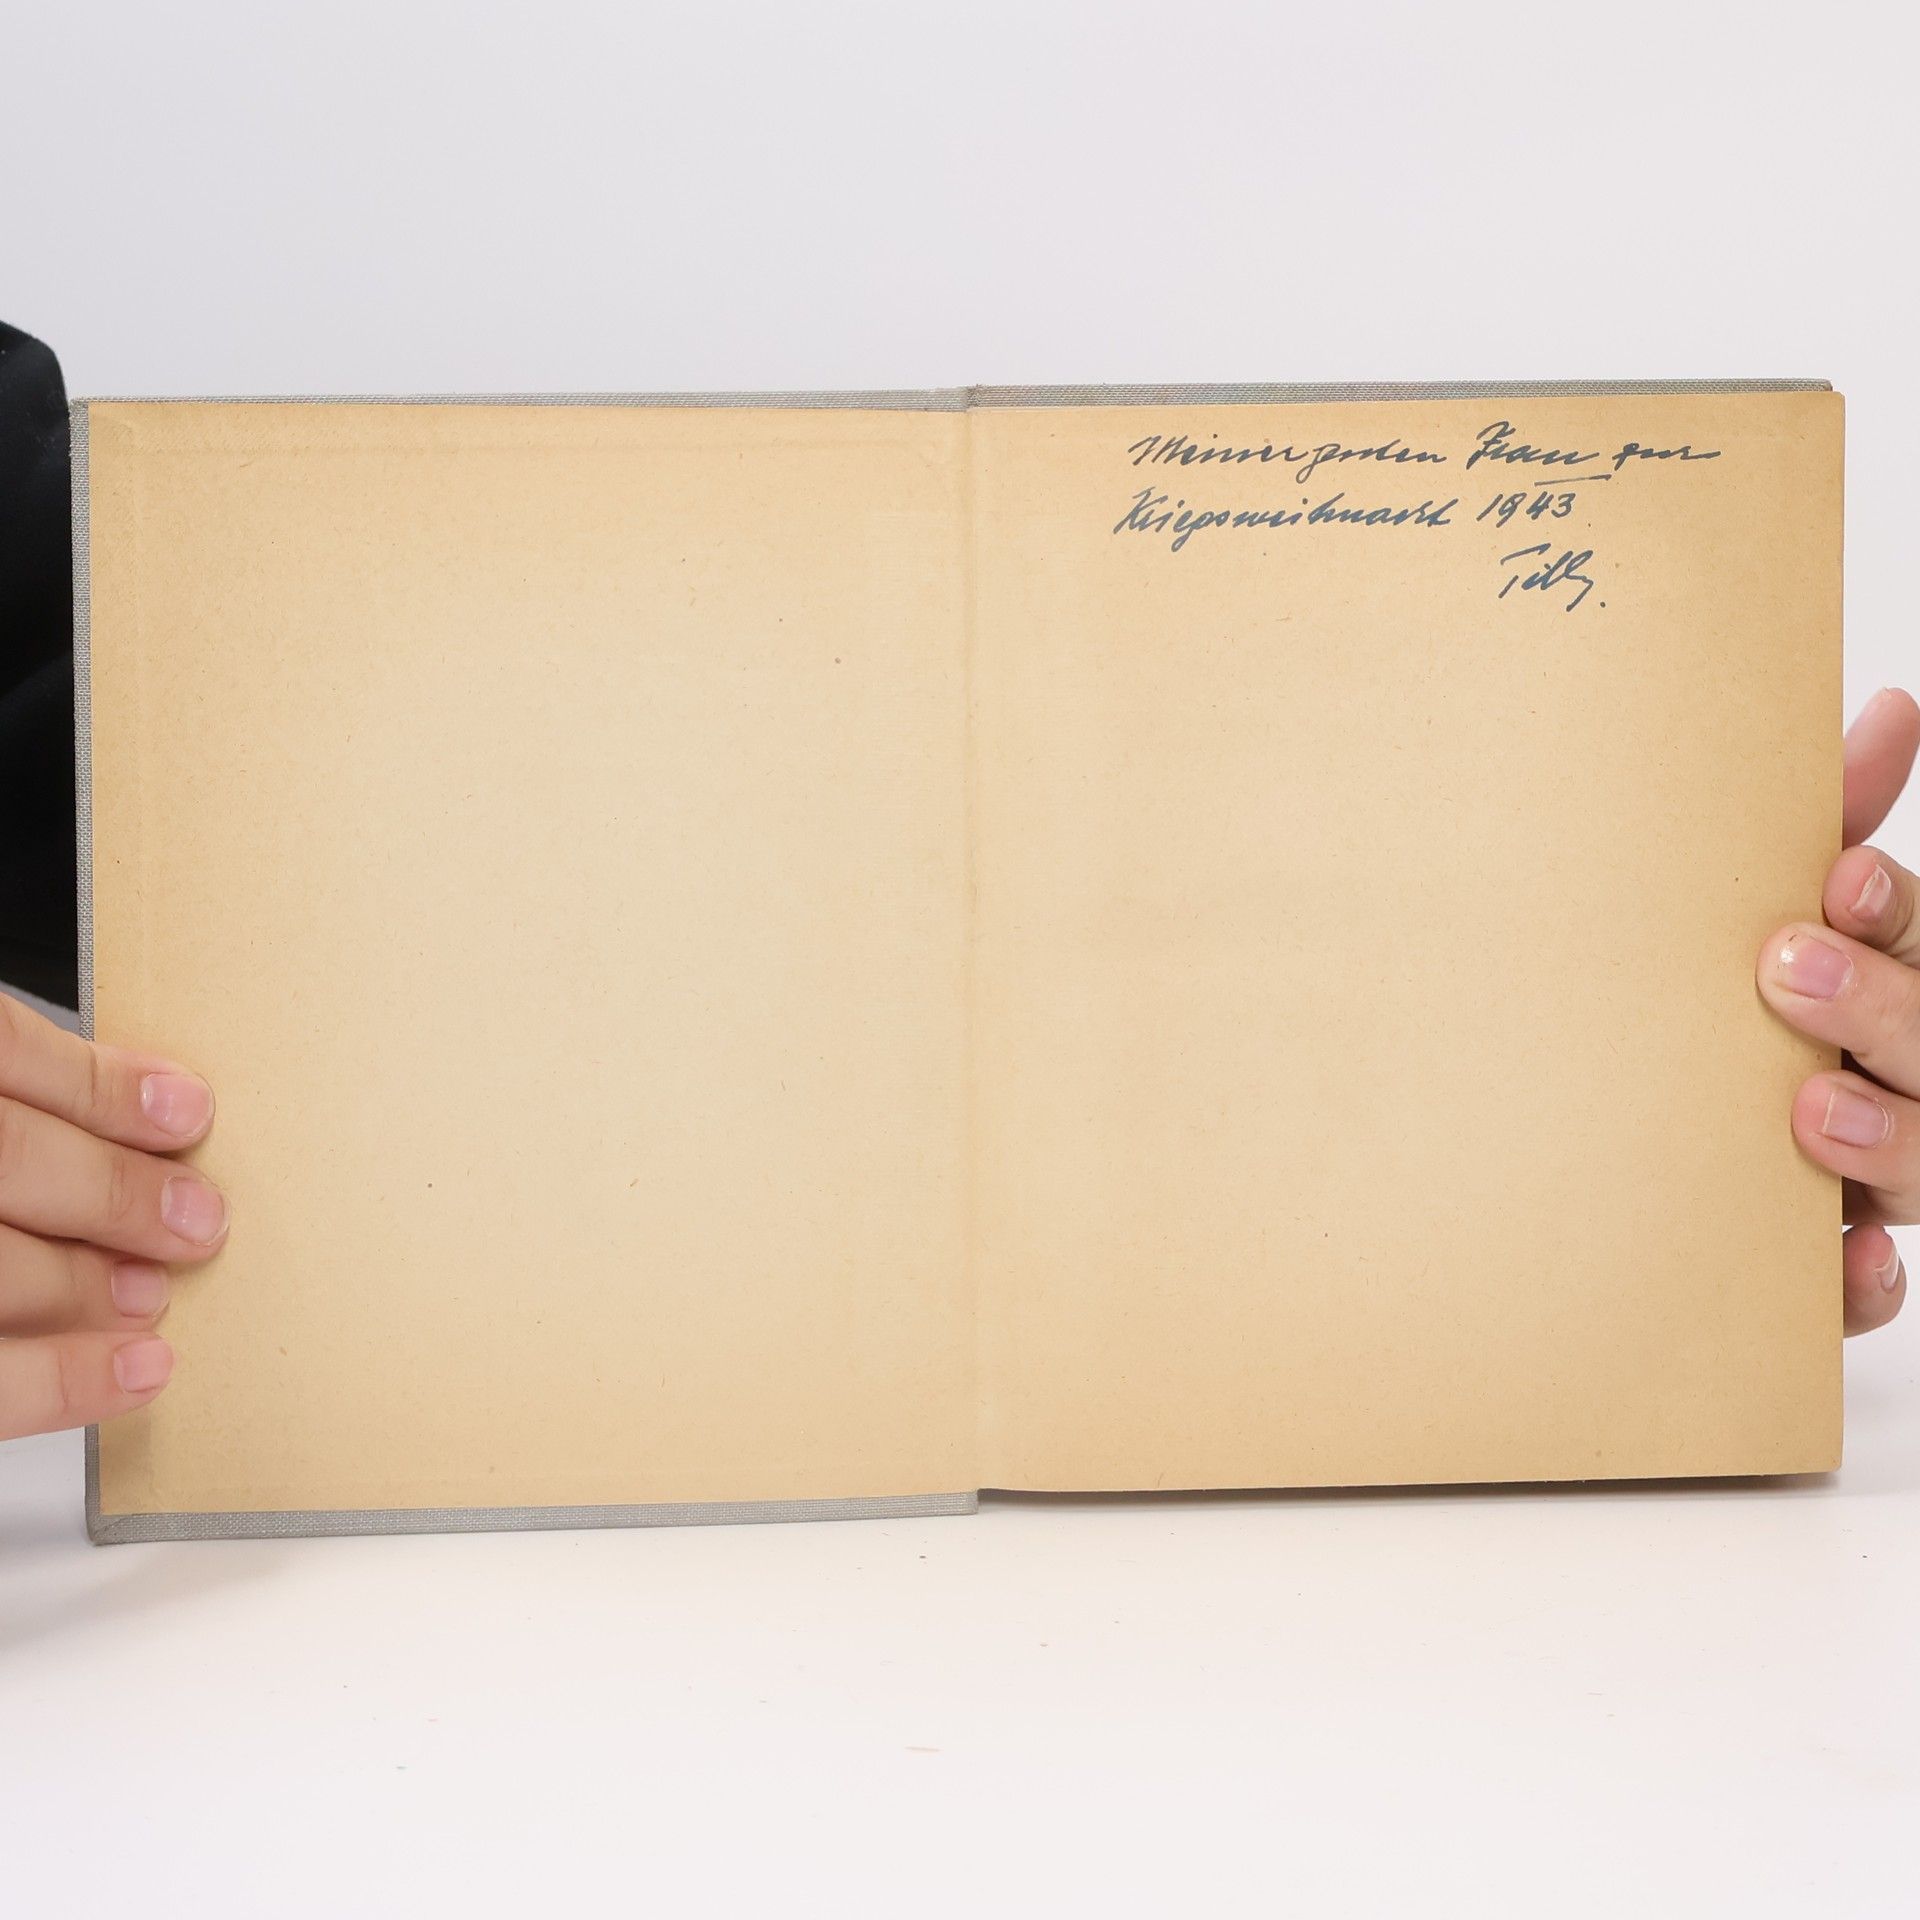 Meiner guten Frau zur
Kriegsweihnacht 1943.
Tilly.